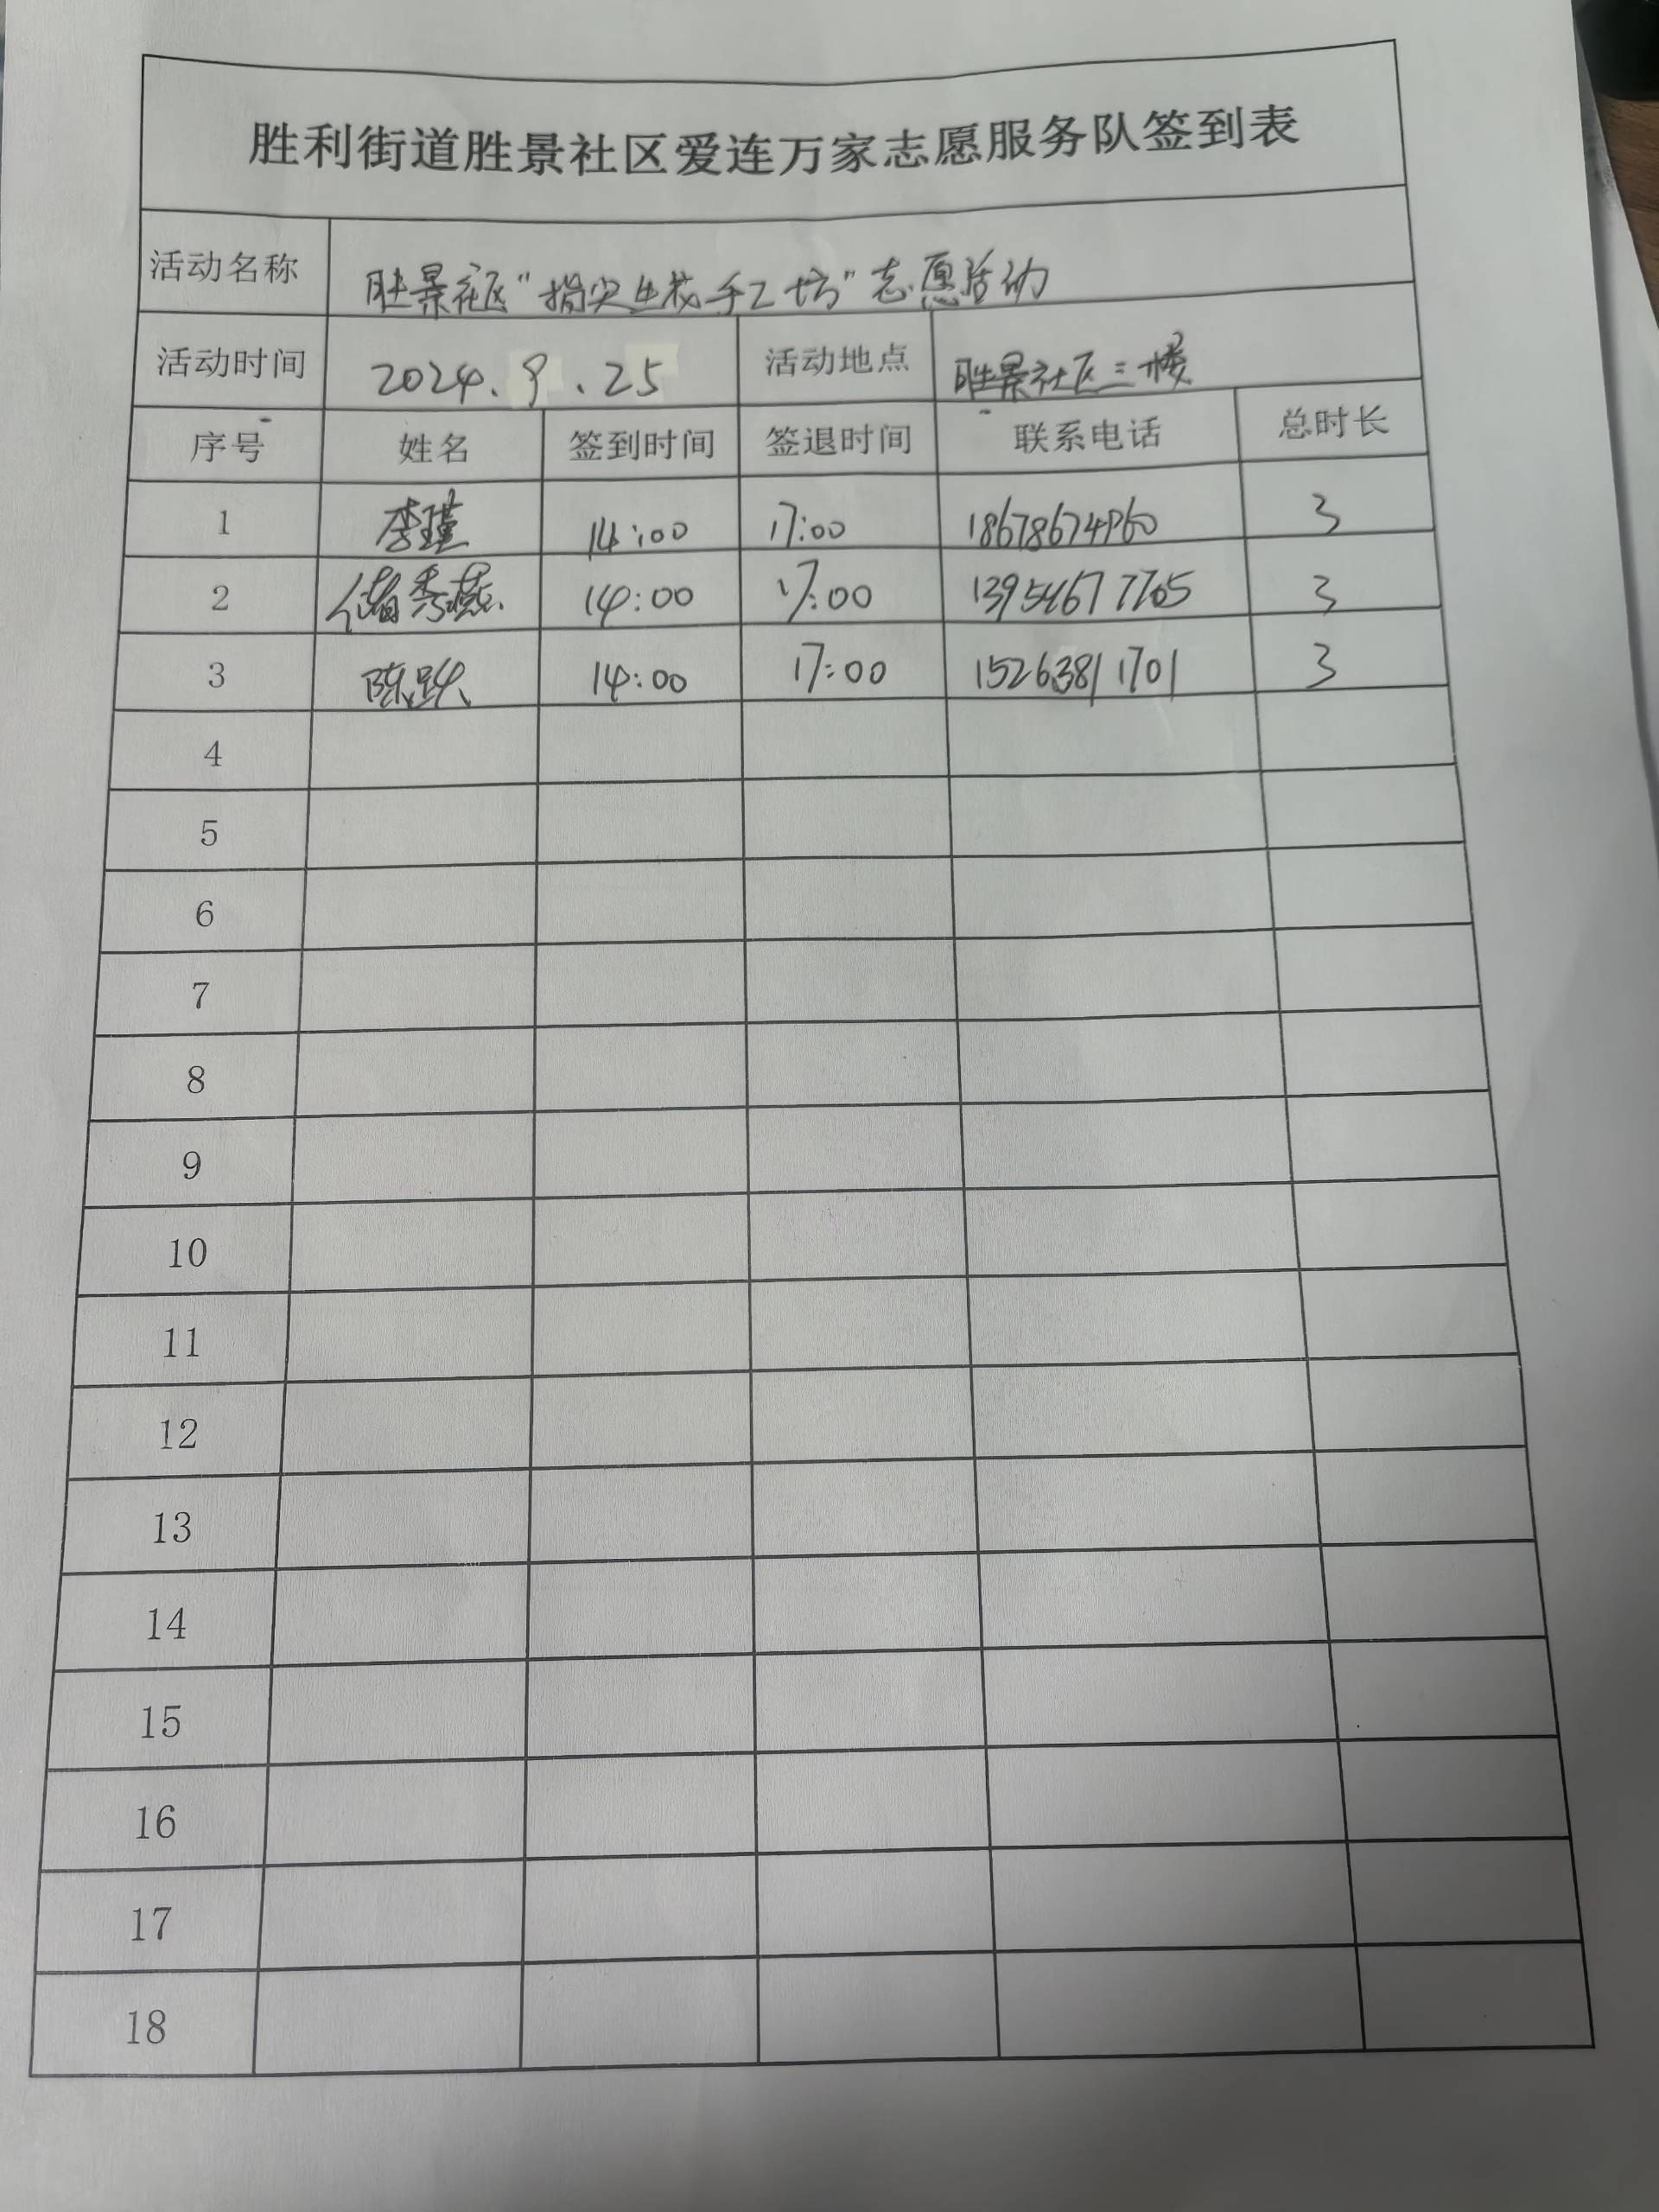 胜利街道胜景社区爱连万家志愿服务队签到表
活动名称 胜景社区“指尖生花手工坊”志愿活动
活动时间 2024.9.25 活动地点 胜景社区三楼
序号 姓名 签到时间 签退时间 联系电话 总时长
1 李瑾 14:00 17:00 18678674960 3
2 储秀燕 14:00 17:00 13954677765 3
3 陈跃 14:00 17:00 15263811701 3
4
5
6
7
8
9
10
11
12
13
14
15
16
17
18